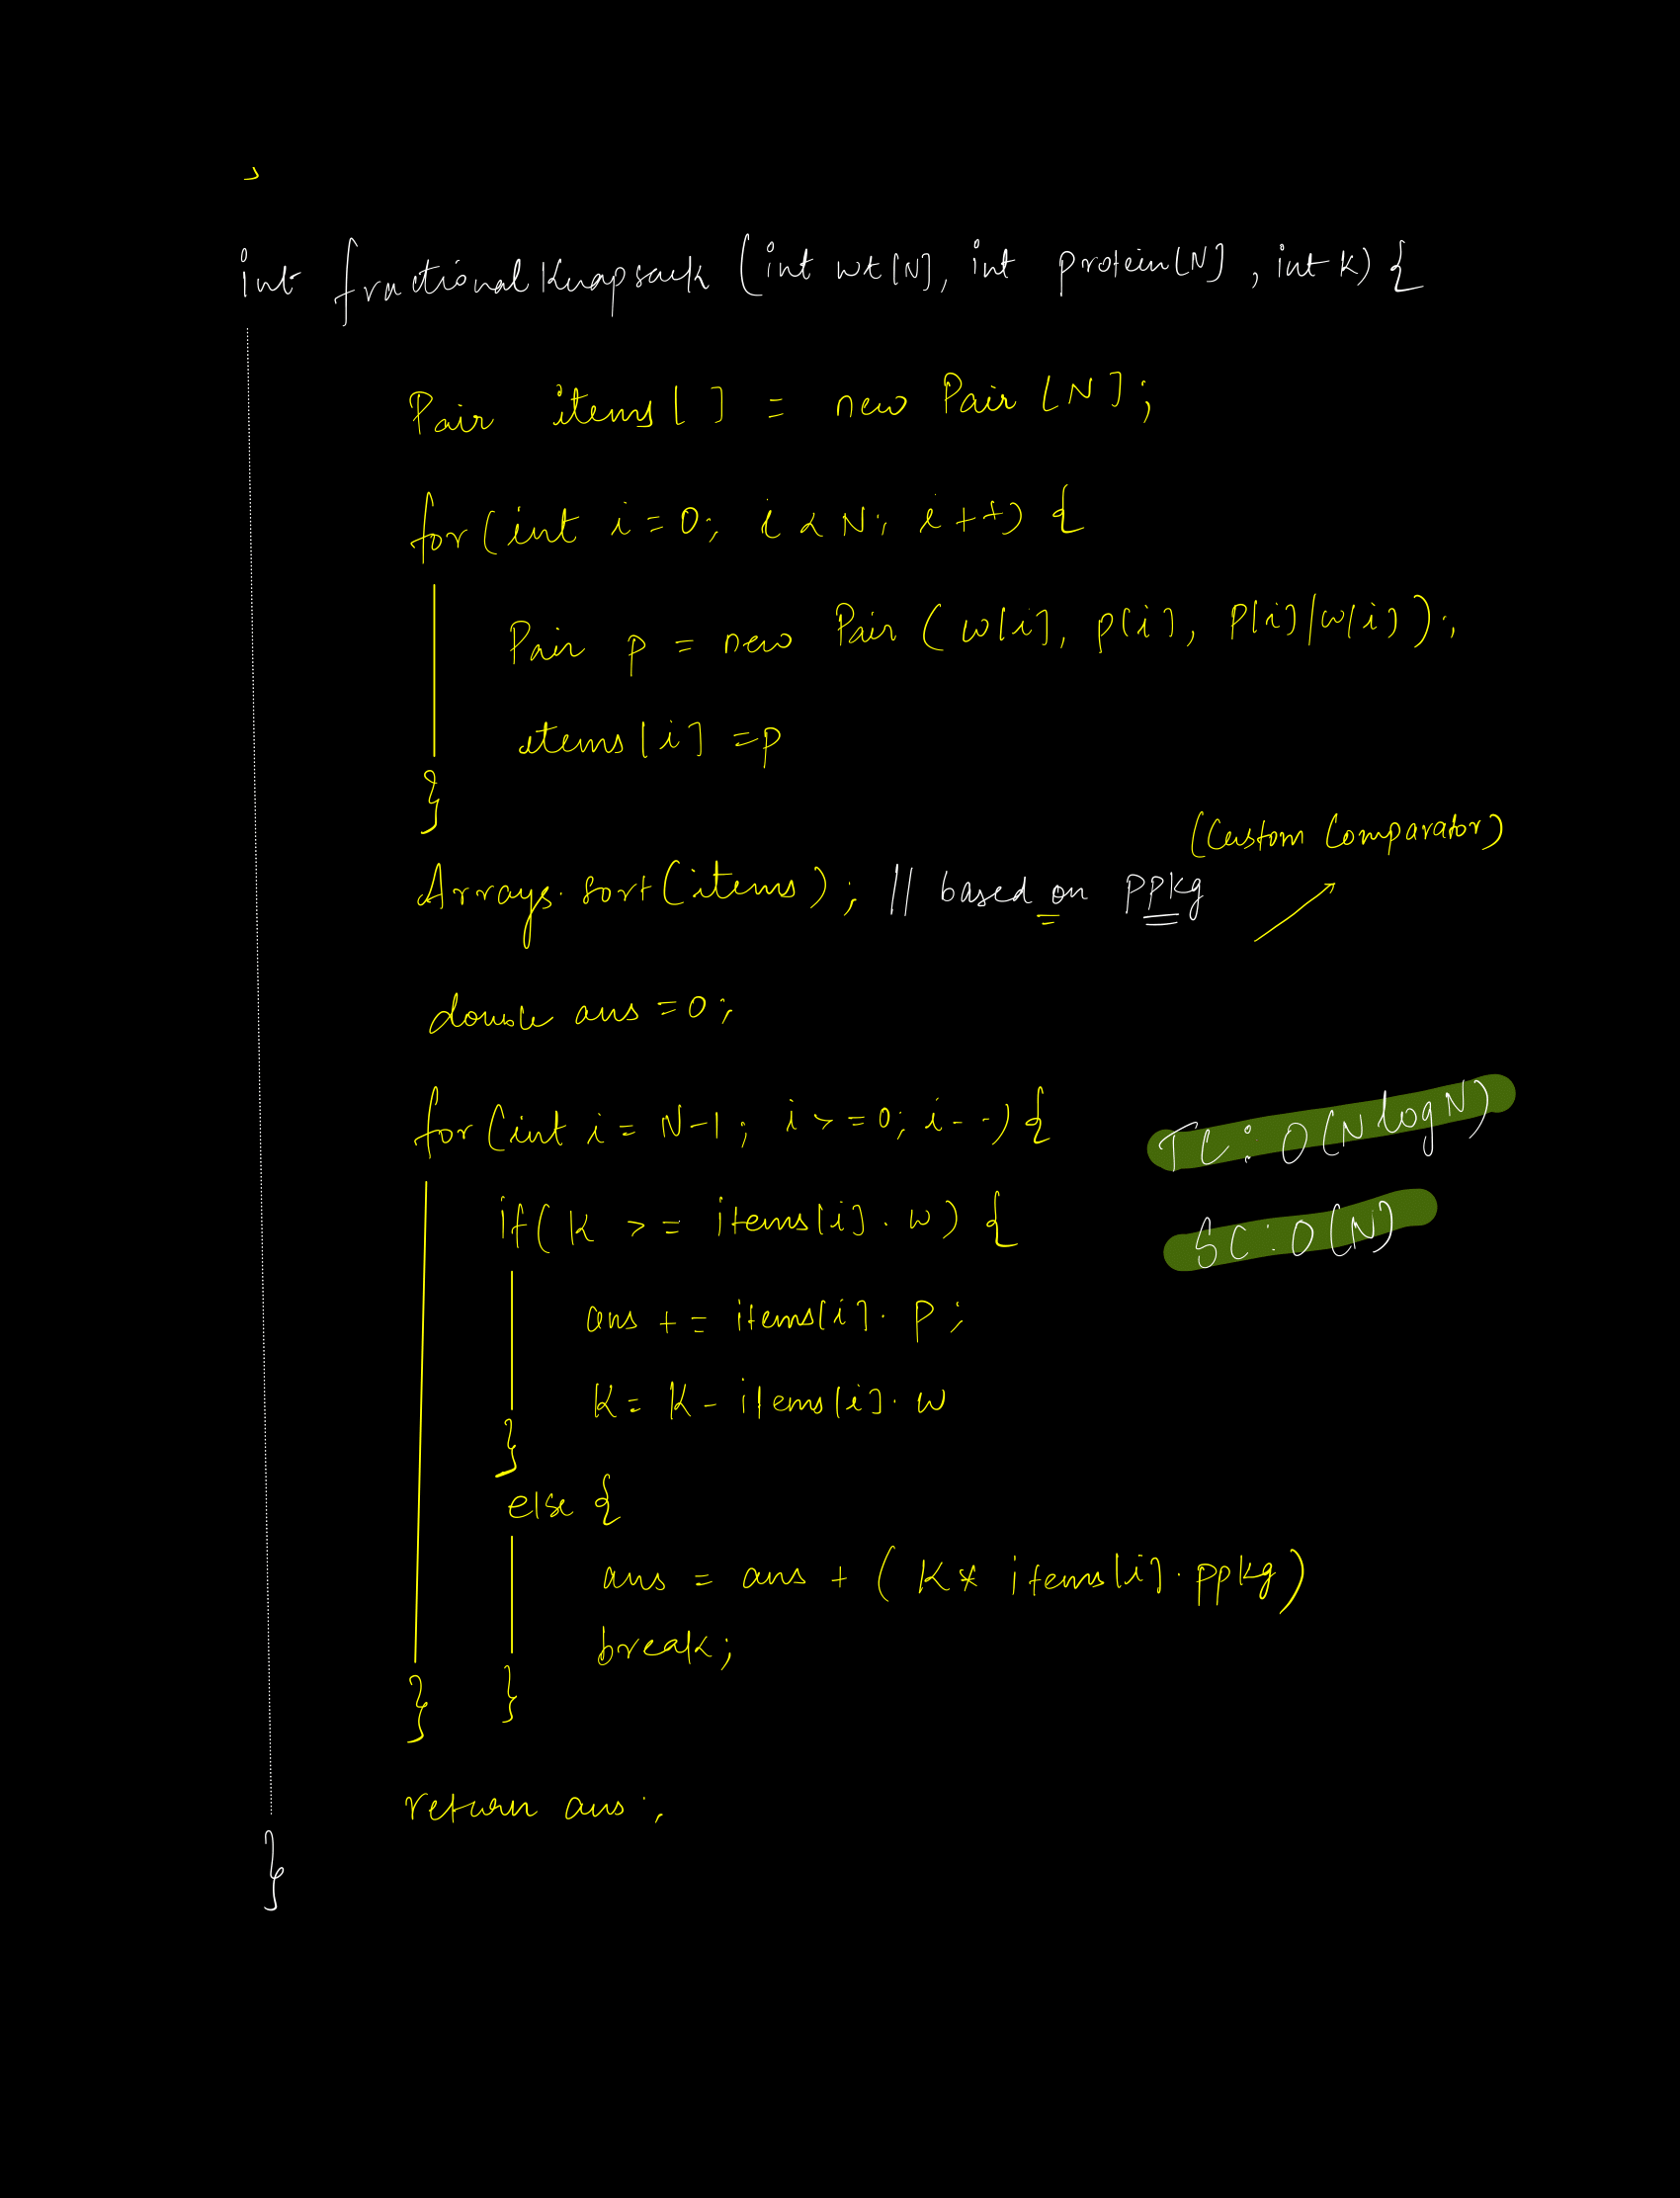 int fractionalKnapsack (int wt[N], int protein[N], int K) {
Pair items[] = new Pair[N];
for(int i=0; i<N; i++) {
Pair p = new Pair (w[i], p[i], P[i]/w[i]);
items[i] =p
}
(Custom Comparator)
Arrays.sort(items); // based on ppkg
double ans =0;
for(int i= N-1; i>=0; i--) {
TC: O(N log N)
if(K >= items[i].w) {
SC: O(N)
ans += items[i].p;
K= K- items[i].w
}
else {
ans = ans + (K* items[i].ppkg)
break;
}
}
return ans;
}